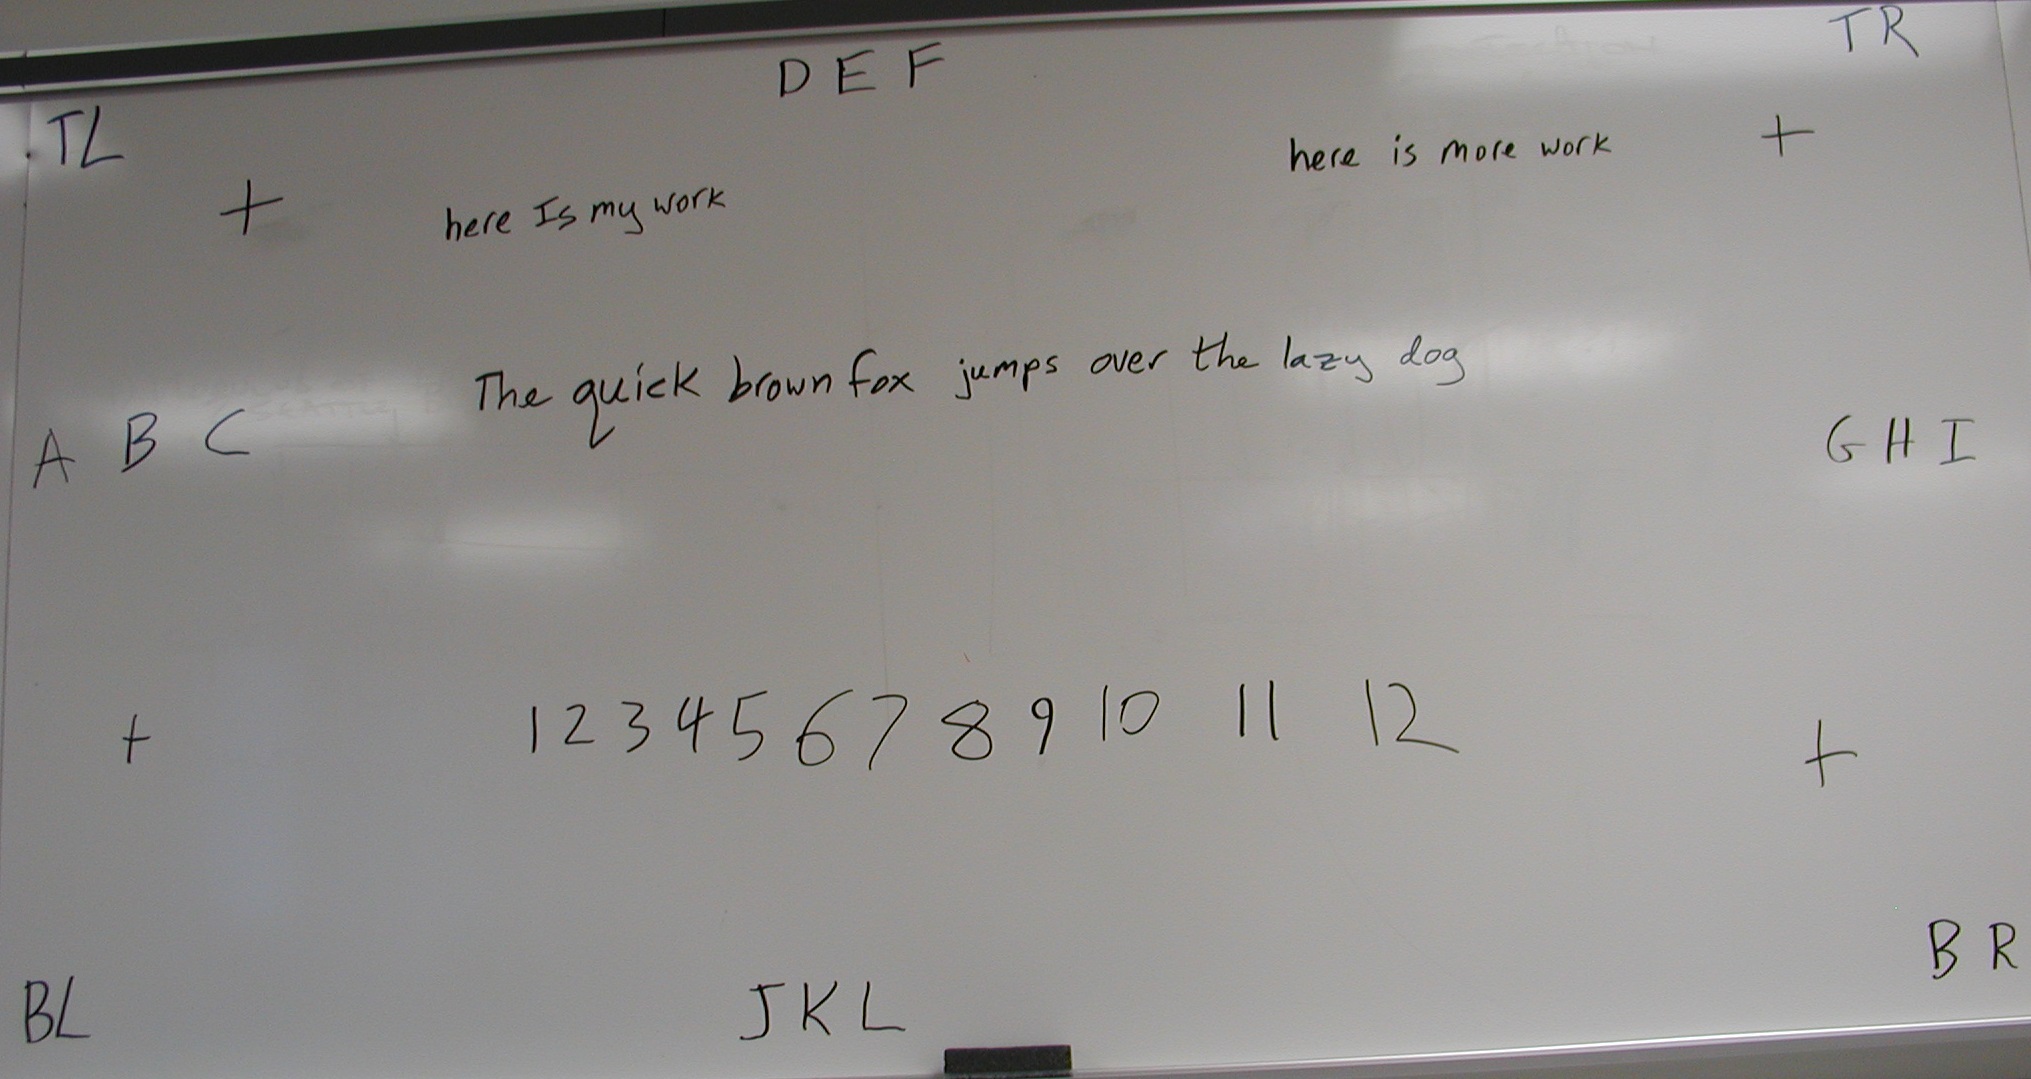 DEF
TR
TL
+ here Is my work
here is more work +
The quick brown fox jumps over the lazy dog
A B C
G H I
+ 1 2 3 4 5 6 7 8 9 10 11 12 +
BL
JKL
BR